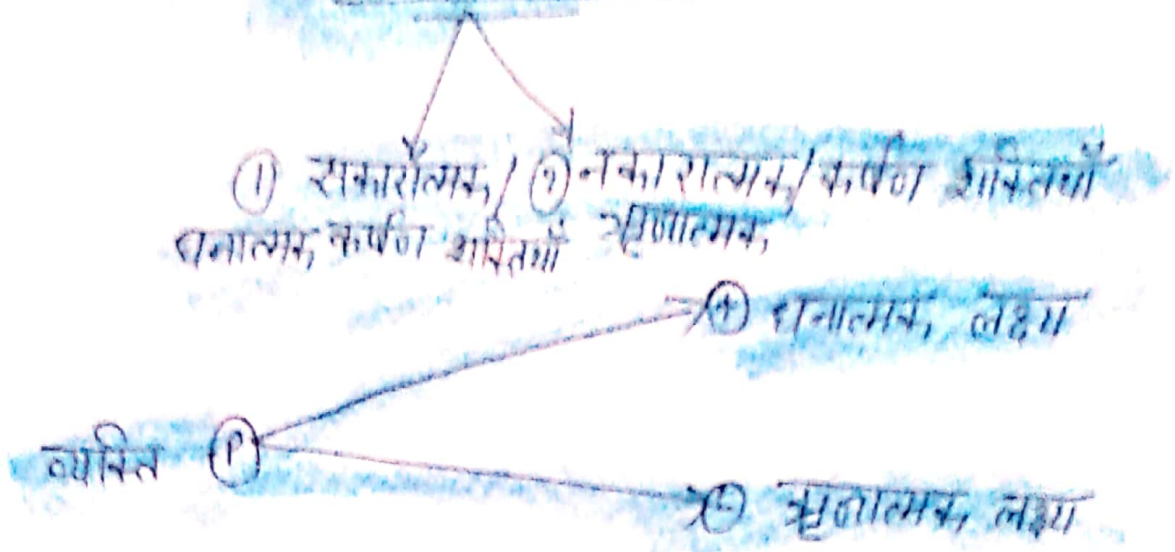 ① सकारात्मक / ② नकारात्मक / कर्षण शक्तियाँ
धनात्मक कर्षण शक्तियाँ ऋणात्मक
+ धनात्मक लक्ष्य
व्यक्ति P
- ऋणात्मक लक्ष्य